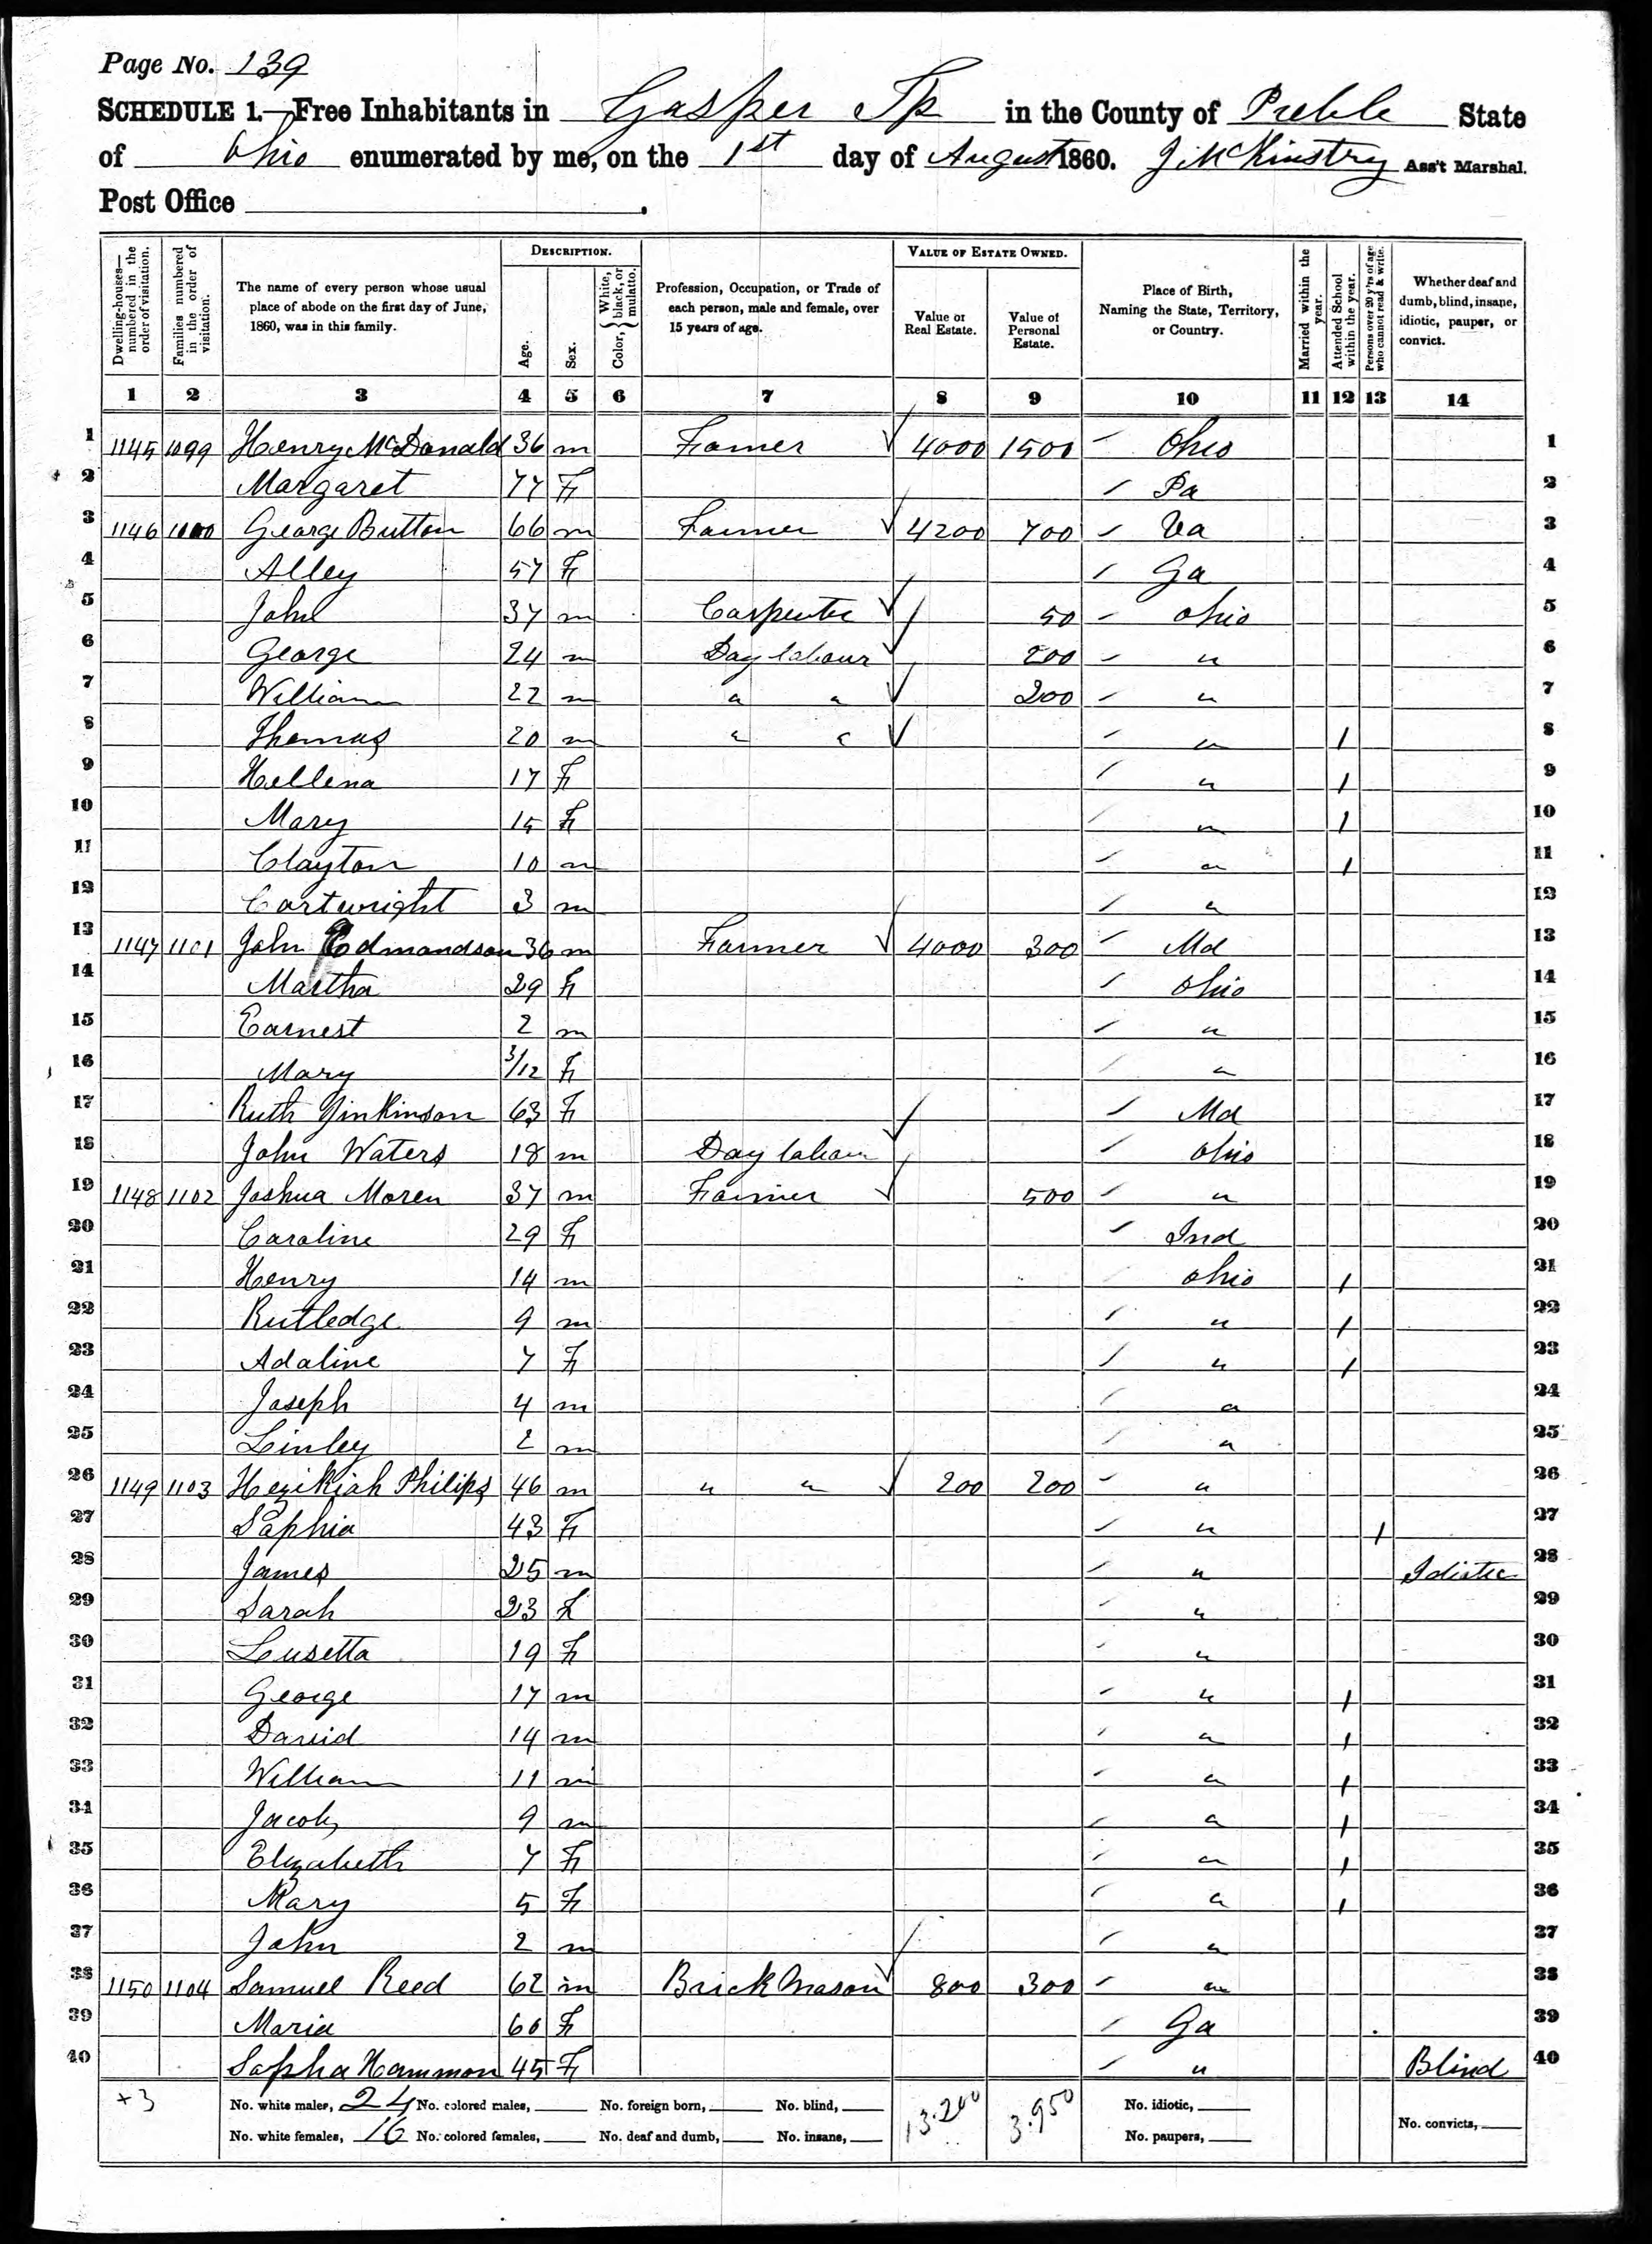 Page No. 139
SCHEDULE 1.—Free Inhabitants in Gasper Tp in the County of Preble State
of Ohio enumerated by me, on the 1st day of August 1860. J McKinstry Ass't Marshal.
Post Office
Dwelling-houses—numbered in the order of visitation. Families numbered in the order of visitation. The name of every person whose usual place of abode on the first day of June, 1860, was in this family. DESCRIPTION. Age. Sex. Color, { White, black, or mulatto. Profession, Occupation, or Trade of each person, male and female, over 15 years of age. VALUE OF ESTATE OWNED. Value of Real Estate. Value of Personal Estate. Place of Birth, Naming the State, Territory, or Country. Married within the year. Attended School within the year. Persons over 20 y'rs of age who cannot read & write. Whether deaf and dumb, blind, insane, idiotic, pauper, or convict.
1 2 3 4 5 6 7 8 9 10 11 12 13 14
1 1145 1099 Henry McDonald 36 m Farmer 4000 1500 Ohio 1
2 Margaret 77 F Pa 2
3 1146 1100 George Button 66 m Farmer 4200 700 Va 3
4 Alley 57 F Ga 4
5 John 37 m Carpenter 50 Ohio 5
6 George 24 m Day labour 200 " 6
7 William 22 m " " 200 " 7
8 Thomas 20 m " " " / 8
9 Hellena 17 F " / 9
10 Mary 15 F " / 10
11 Clayton 10 m " / 11
12 Cartwright 3 m " 12
13 1147 1101 John Edmandson 36 m Farmer 4000 300 Md 13
14 Martha 29 F Ohio 14
15 Earnest 2 m " 15
16 Mary 3/12 F " 16
17 Ruth Jinkinson 63 F Md 17
18 John Waters 18 m Day labour Ohio 18
19 1148 1102 Joshua Moren 37 m Farmer 500 " 19
20 Caroline 29 F Ind 20
21 Henry 14 m Ohio / 21
22 Rutledge 9 m " / 22
23 Adaline 7 F " / 23
24 Joseph 4 m " 24
25 Linley 2 m " 25
26 1149 1103 Hezikiah Philips 46 m " " 200 200 " 26
27 Saphia 43 F " / 27
28 James 25 m " Idiotic 28
29 Sarah 23 F " 29
30 Lusetta 19 F " 30
31 George 17 m " / 31
32 David 14 m " / 32
33 William 11 m " / 33
34 Jacob 9 m " / 34
35 Elizabeth 7 F " / 35
36 Mary 5 F " / 36
37 John 2 m " 37
38 1150 1104 Samuel Reed 62 m Brick Mason 800 300 " 38
39 Maria 60 F Ga 39
40 Sapha Hammon 45 F " Blind 40
+3 No. white males, 24 No. colored males, No. foreign born, No. blind, 13.200 3.950 No. idiotic,
No. white females, 16 No. colored females, No. deaf and dumb, No. insane, No. paupers, No. convicts,